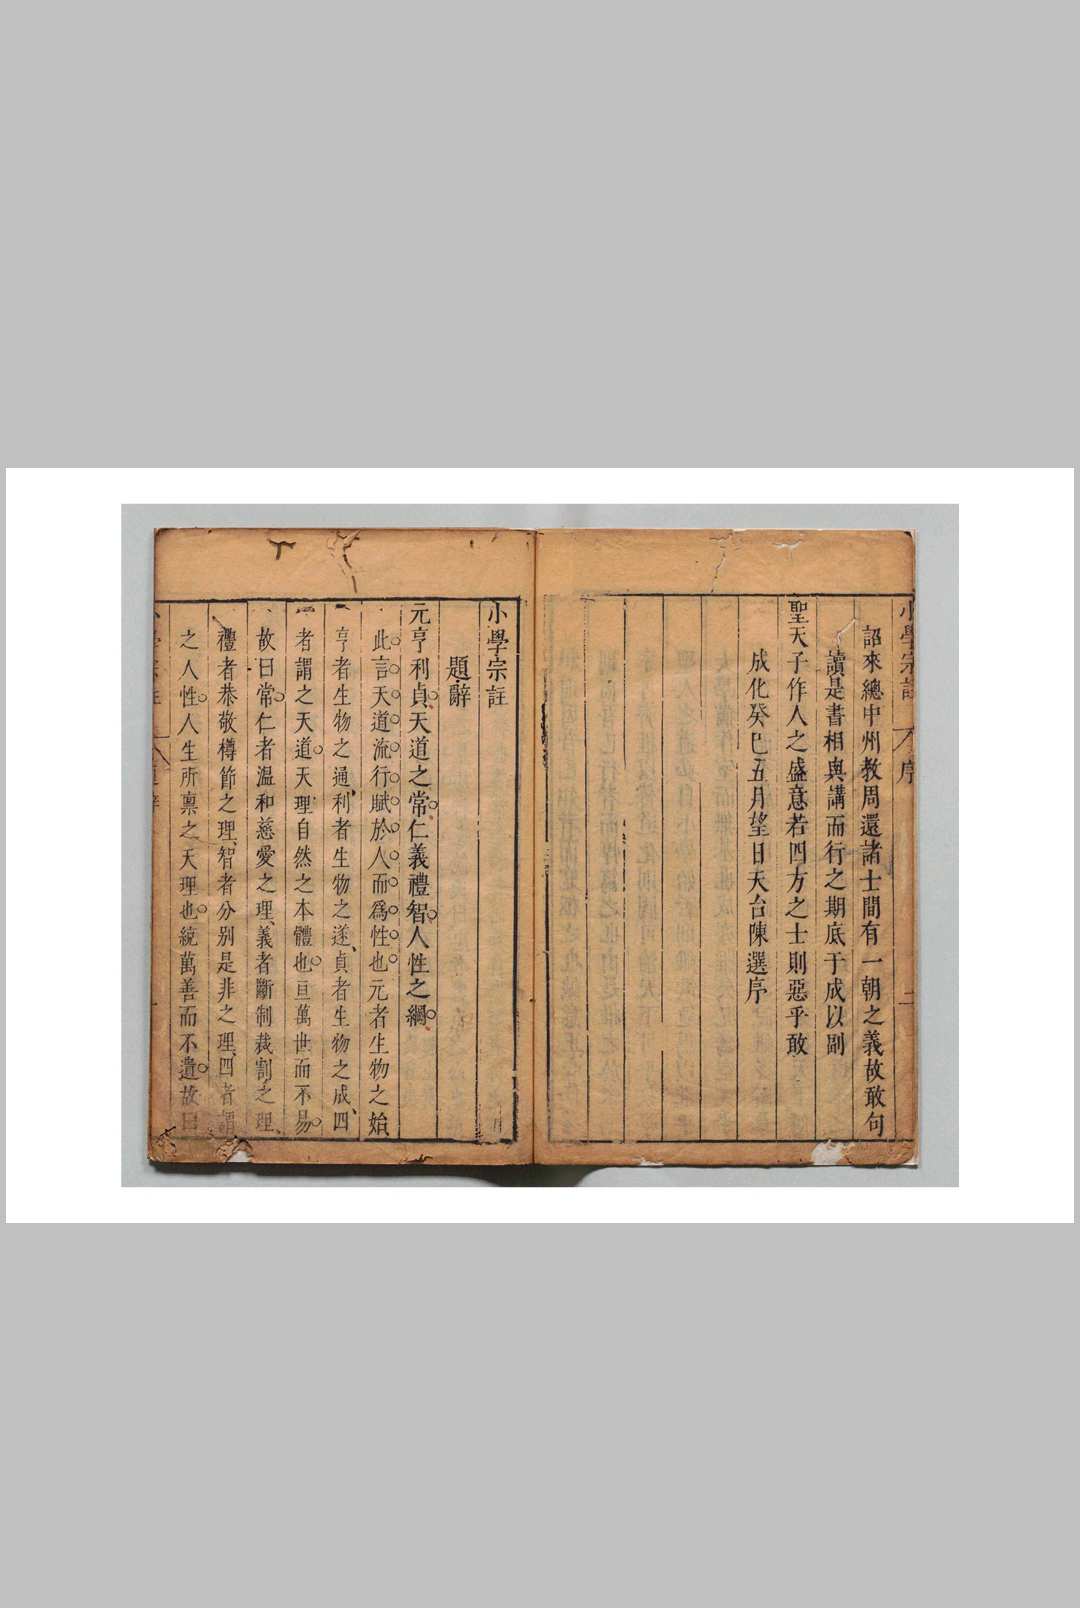 小學宗註 序 二
詔來總中州教周還諸士間有一朝之義故敢句
讀是書相與講而行之期底于成以副
聖天子作人之盛意若四方之士則惡乎敢
成化癸巳五月望日天台陳選序
小學宗註
題辭
元亨利貞天道之常仁義禮智人性之綱
此言天道流行賦於人而為性也元者生物之始
亨者生物之通利者生物之遂貞者生物之成四
者謂之天道天理自然之本體也亘萬世而不易
故曰常仁者溫和慈愛之理義者斷制裁割之理
禮者恭敬樽節之理智者分别是非之理四者謂
之人性人生所稟之天理也統萬善而不遺故曰
小學宗註